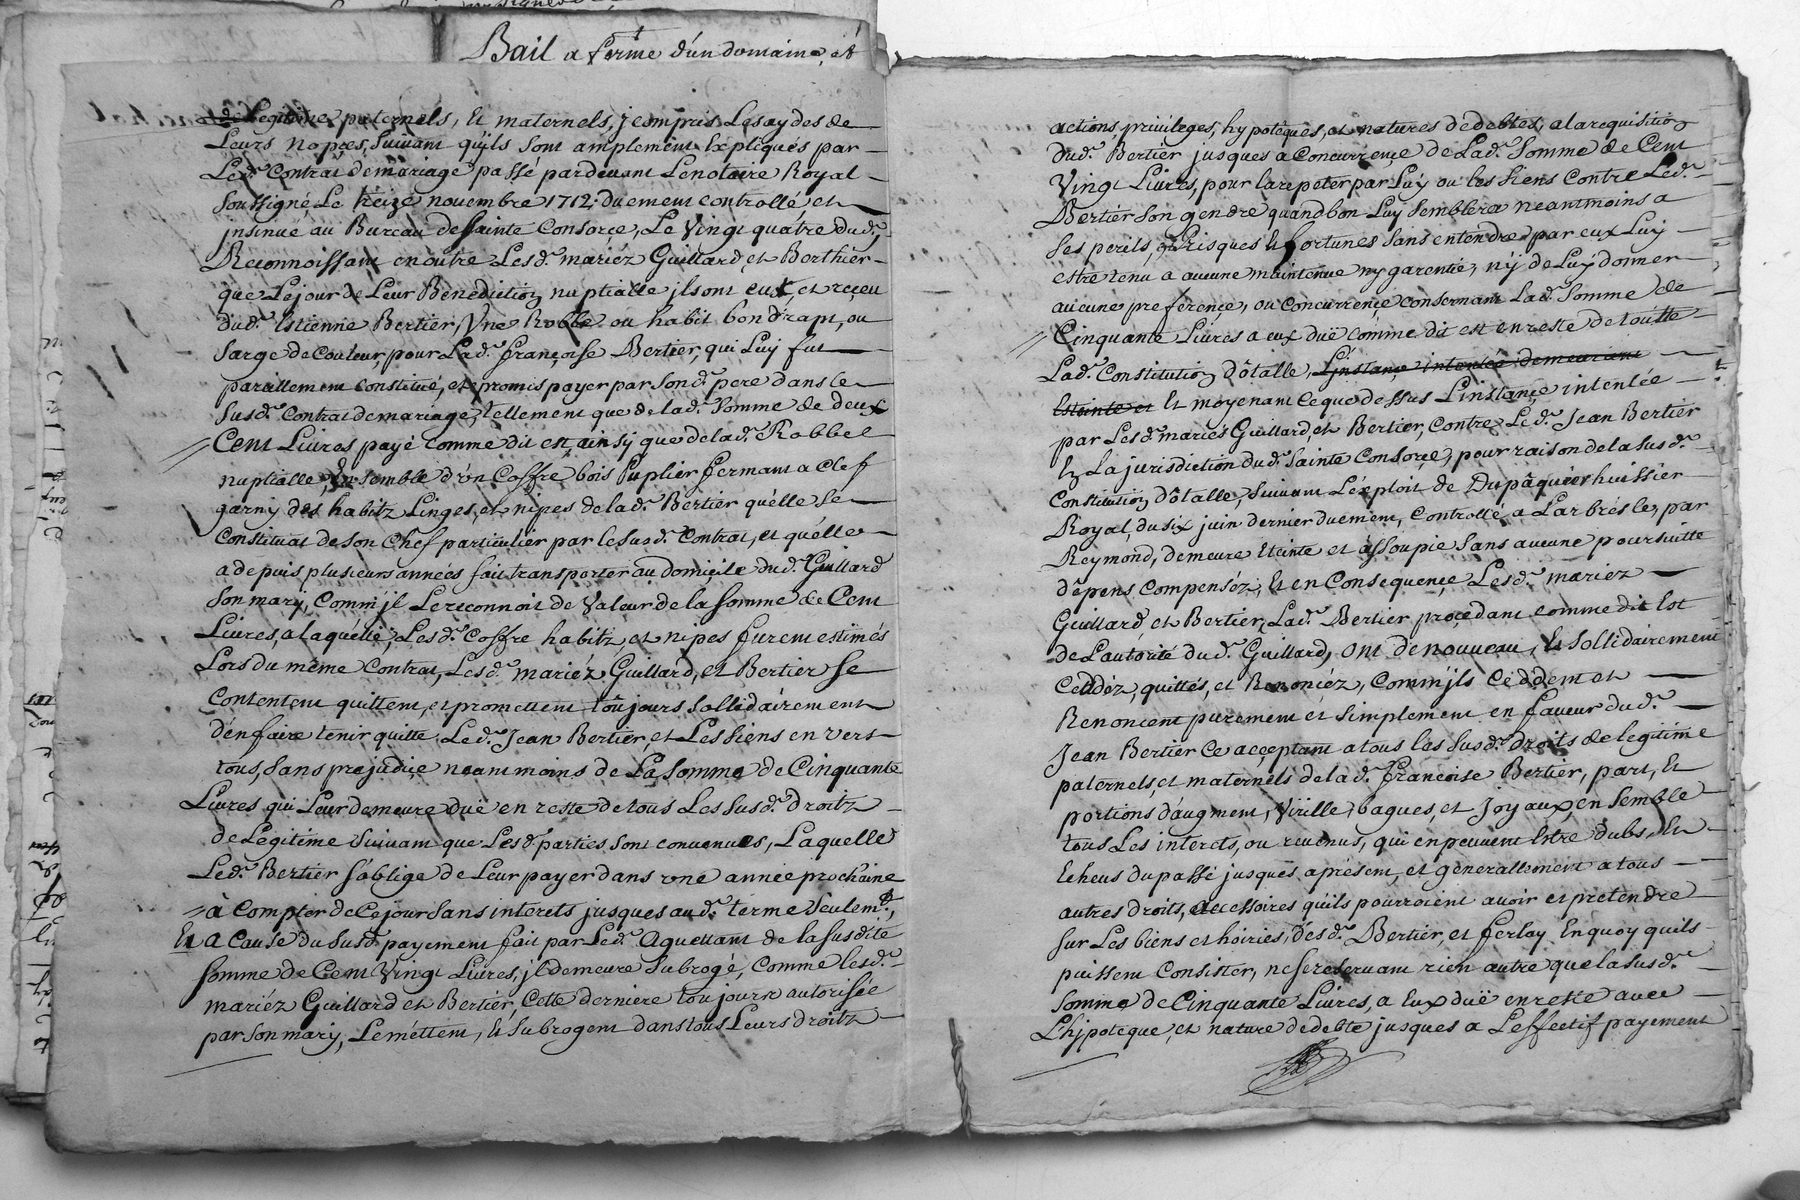 Bail a ferme d'un domaine, et
de Legitime paternels, et maternels, y compris Les aydes de
Leurs nopçes, Suivant qu'ils sont amplement Expliqués par
Led. Contrat de mariage passé pardevant Le notaire Royal
soussigné Le treize novembre 1712. duement controllé et
insinué au Bureau de sainte Consorce, Le Vingt quatre dud.
Reconnoissant en outre Lesd. mariéz Guillard, et Berthier
que Le jour de Leur Benediction nuptialle ils ont eut, et reçeu
dud. Estienne Bertier, Vne Robbe ou habit bon drapt, ou
sarge de Couleur, pour Lad. françoise Bertier, qui Luy fut
pareillement Constitué, et promis payer par son d. pere dans le
susd. Contrat de mariage, tellement que de lad. somme de deux
Cent Livres payé comme dit est, ainsy que de lad. Robbe
nuptialle, Ensemble d'un Coffre bois Puplier fermant a Clef
garny des habitz Linges, et nipes de lad. Bertier qu'elle se
Constituat de son Chef particulier par le susd. Contrat, et qu'elle
a depuis plusieurs années fait transporter au domicile dud. Guillard
son mary, Comm'jl Le reconnoit de Valeur de la somme de Cent
Livres, a laquelle, Lesd. Coffre habitz, et nipes furent estimés
Lors du même Contrat, Lesd. mariéz Guillard, et Bertier se
Contentent quittent, et promettent toûjours sollidairement
d'en faire tenir quitte Led. Jean Bertier, et Les siens envers
tous, sans prejudiçe neantmoins de La somme de Cinquante
Livres qui Leur demeure duë en reste de tous Les susd. droitz
de Legitime suivant que Lesd. parties sont convenues, Laquelle
Led. Bertier s'oblige de Leur payer dans vne année prochaine
à Compter de Ce jour sans interets jusques aud. terme seulem.t,
Et a Cause du susd. payement fait par Led. aquettant de la susdite
somme de Cent Vingt Livres, jl demeure subrogé, Comme lesd.
mariéz Guillard et Bertier, Cette derniere toujours autorisée
par son mary, Le méttent, et subrogent dans tous Leurs droitz
actions, privileges, hypotêques, et natures de debtes, a la requisition
dud. Bertier jusques a Concurrençe de Lad. somme de Cent
Vingt Livres, pour la repeter par Luy ou les siens Contre Led.
Bertier son gendre quand bon Luy semblera neantmoins a
ses perils, risques et fortunes sans entendre par eux Luy
estre tenu a aucune maintenue ny garentie, ny de Luy donner
aucune preferençe, ou Concurrençe Consernant Lad. somme de
Cinquante Livres a eux duë comme dit est en reste de toutte
Lad. Constitution dôtalle, L'instançe intentée demeurient
Esteinte et Et moyenant Ce que dessus L'instançe intentée
par Lesd. mariés Guillard, et Bertier, Contre Led. Jean Bertier
En La jurisdiction dud. sainte Consorçe, pour raison de la susd.
Constitution dôtalle, suivant L'exploit de Dupâquier huissier
Royal, du six juin dernier duement, Controllé a Larbresle, par
Reymond, demeure Eteinte et assoupie sans aucune poursuitte
dêpens compenséz; Et en Consequençe Lesd. mariéz
Guillard, et Bertier, Lad. Bertier procedant comme dit Est
de L'autorité dud. Guillard, ont de nouveau, et sollidairement
Ceddéz, quittés, et Renonçéz, Comm'jls Ceddent et
Renoncent purement et simplement en faveur dud.
Jean Bertier Ce acçeptant a tous les susd. droits de legitime
paternels, et maternels de lad. françoise Bertier, part, Et
portions d'augment, Virille, bagues, et Joyaux, ensemble
tous Les interets, ou revenus, qui en peuvent Estre dubs, Et
Echeus du passé jusques apresent, et generallement a tous
autres droits, accessoires qu'ils pourroient avoir et pretendre
sur Les biens et hoiries, desd. Bertier, et ferlay En quoy qu'ils
puissent Consister, ne se reservant rien autre que la susd.
somme de Cinquante Livres, a Eux duë en reste avec
L'hipoteque, et nature de debte jusques a L'effectif payement